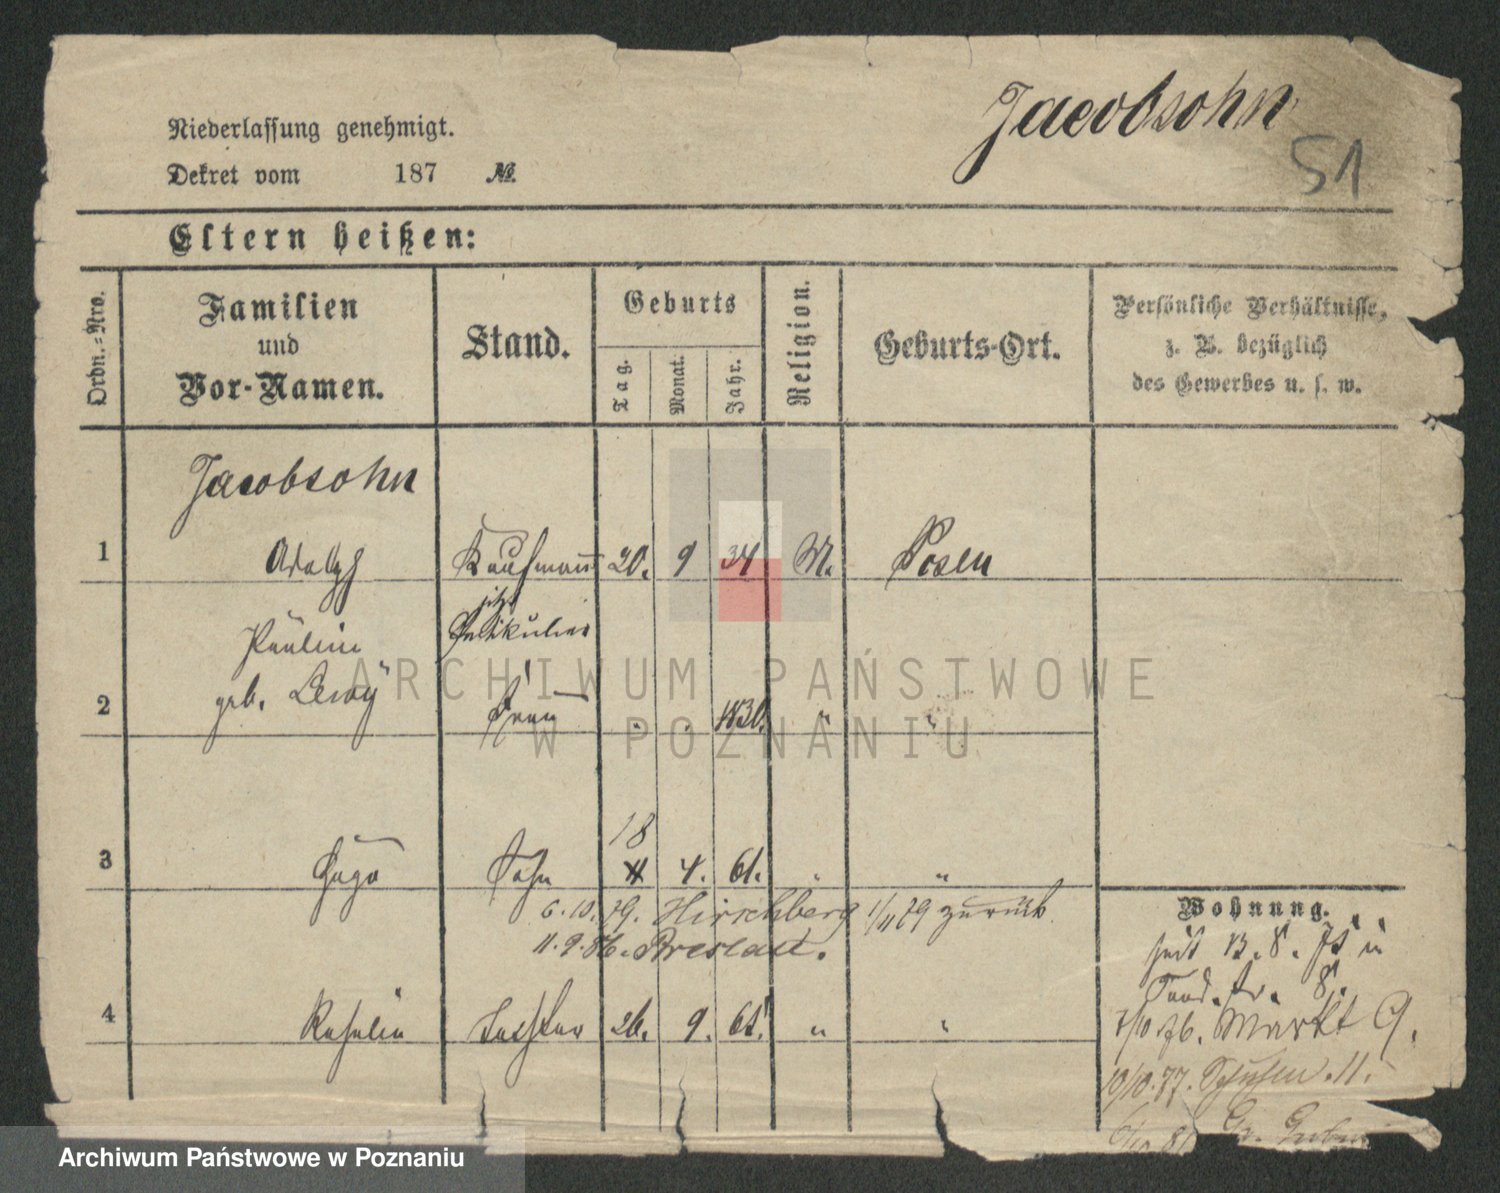 Jacobsohn
51
Niederlassung genehmigt.
Dekret vom 187 №
Eltern heißen:
Ordn.-Nro.
Familien
und
Vor-Namen.
Stand.
Geburts
Tag.
Monat.
Jahr.
Religion.
Geburts-Ort.
Persönliche Verhältnisse,
z. B. bezüglich
des Gewerbes u. s. w.
Jacobsohn
1 Adolph Kaufmann 20. 9 34 M. Posen
jetzt
Partikulier
Pauline
2 geb. Levy Frau " " 1830. " "
18
3 Hugo Sohn 4. 61. " "
6.10.79. Hirschberg 1/11 79 zurück
11.9.86. Breslau.
4 Rosalie Tochter 26. 9. 61. " "
Wohnung.
seit 13. 8. 75 in
Sand.str. 8.
7/10.76. Markt 9.
10/10.77. Schuhm. 11.
81 Gr. Gerber
ARCHIWUM PAŃSTWOWE
W POZNANIU
Archiwum Państwowe w Poznaniu